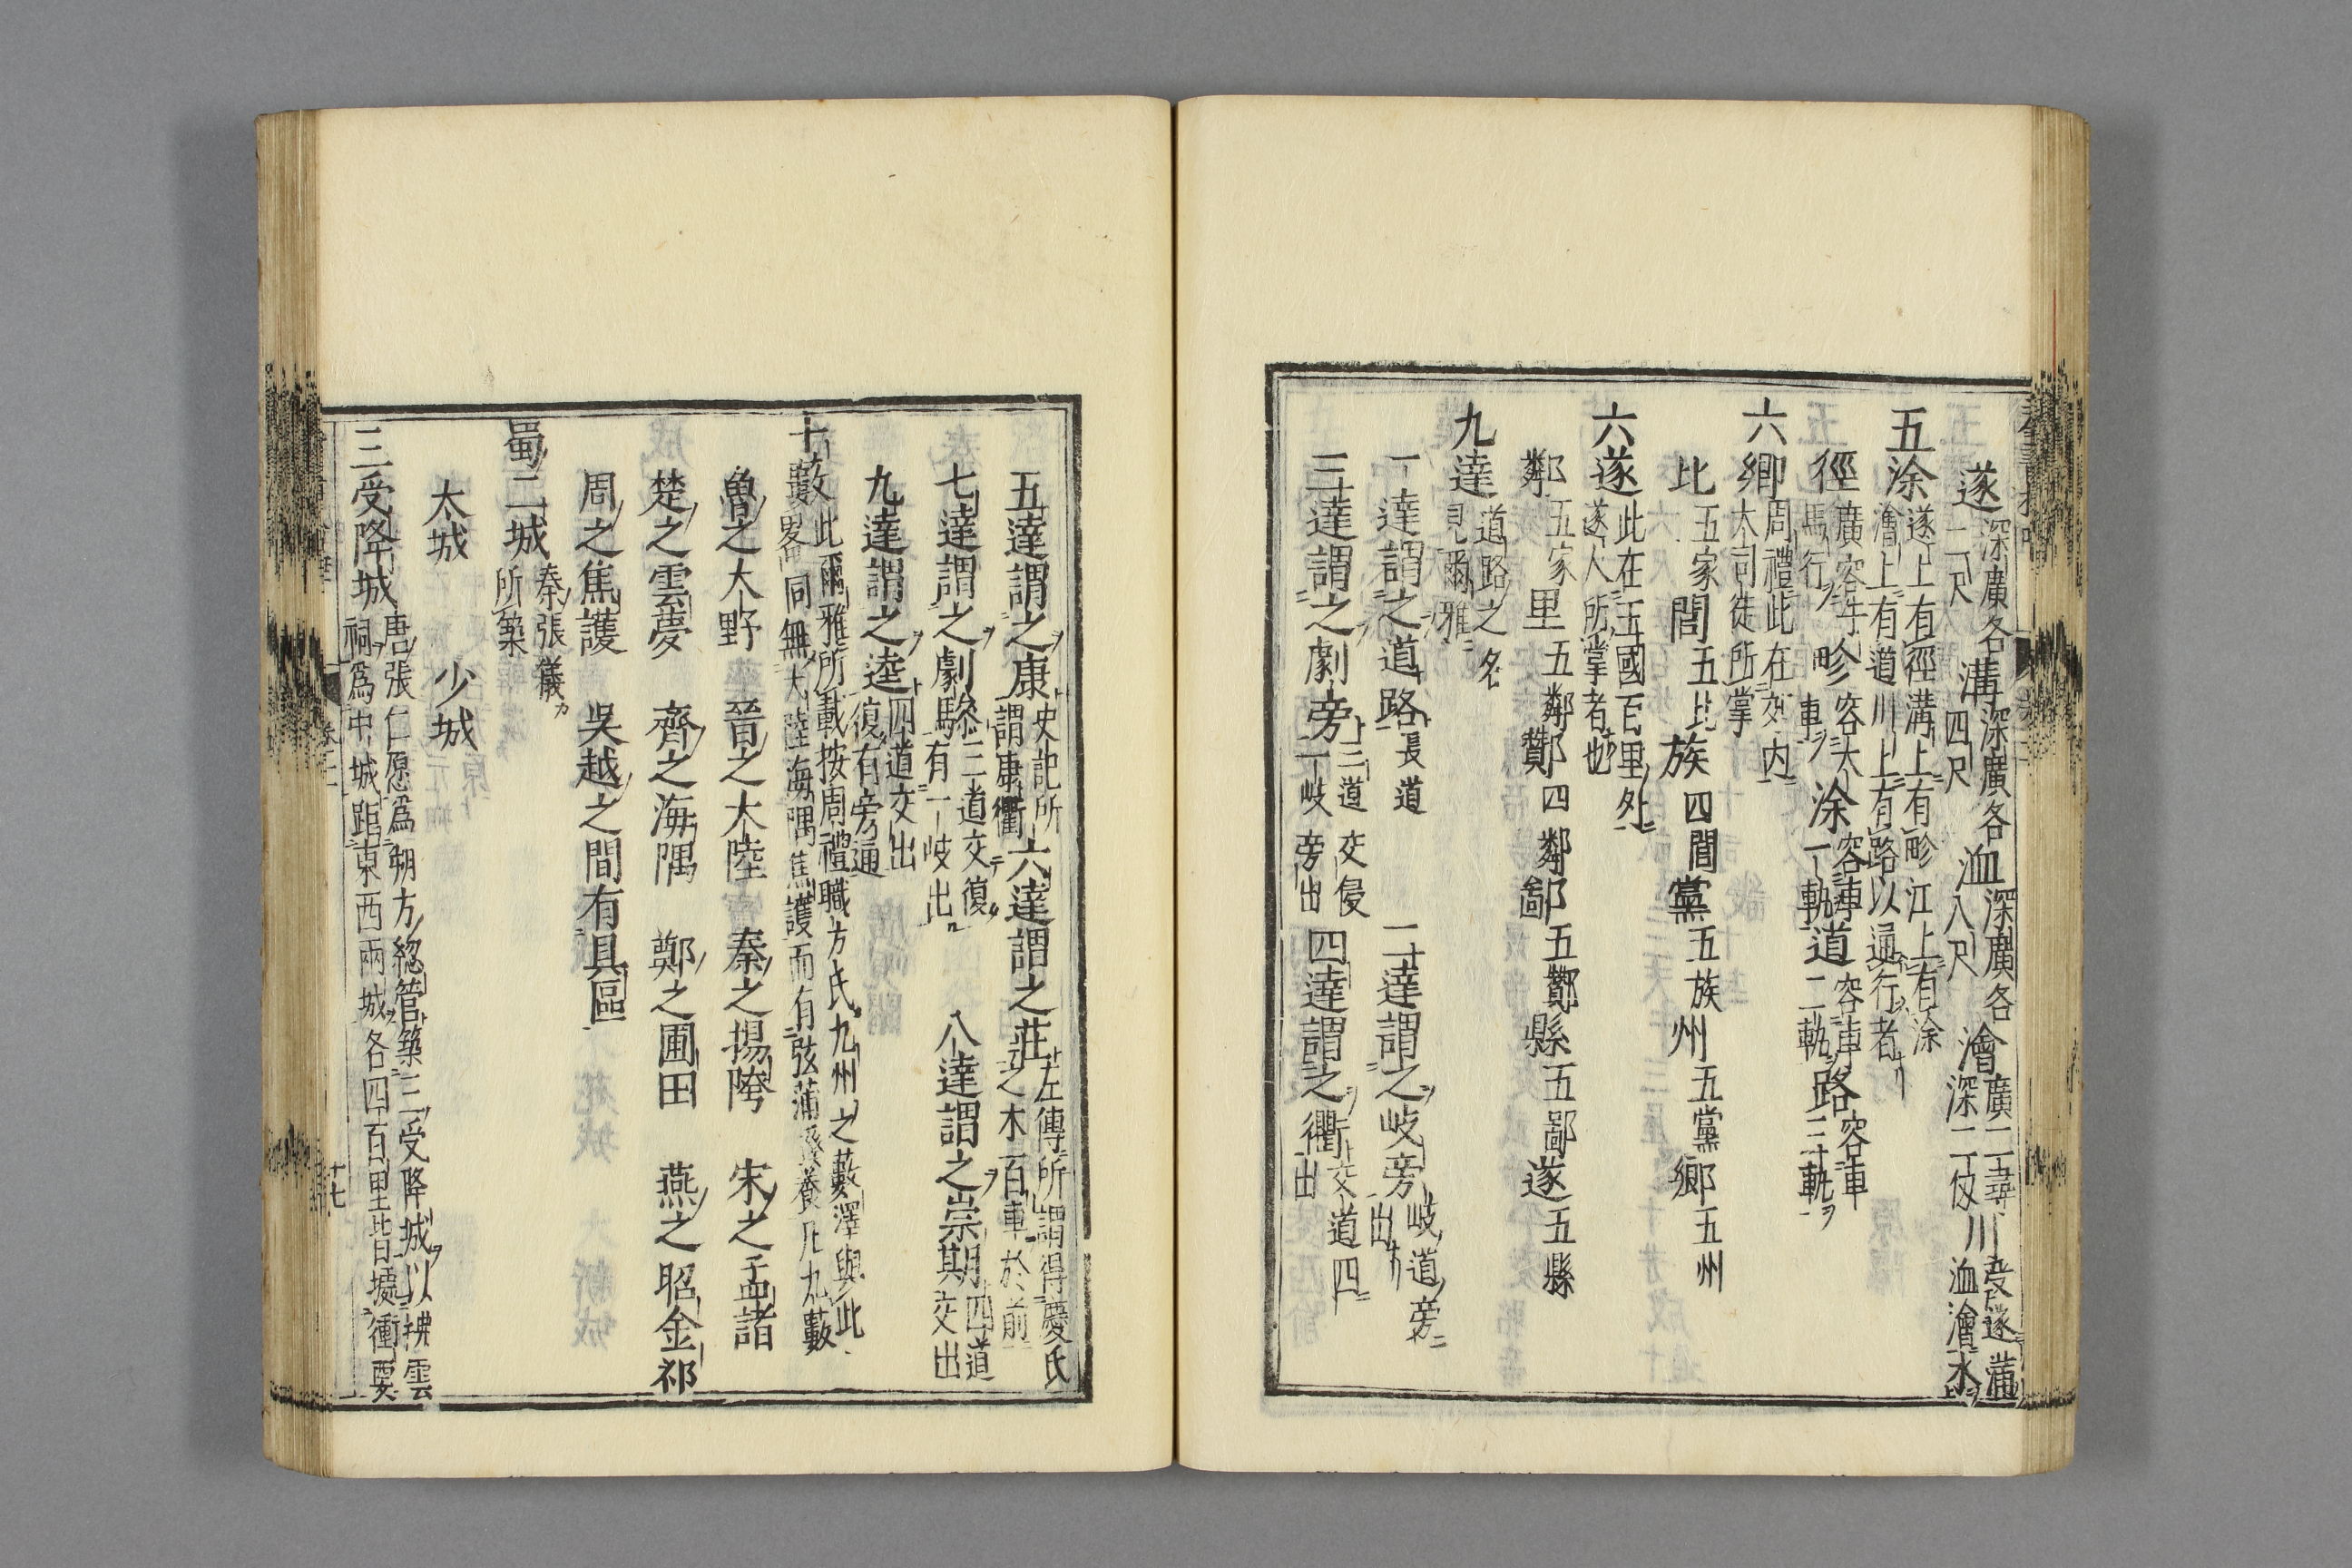 遂深廣各二尺 溝深廣各四尺 洫深廣各八尺 澮廣二尋深二仞 川受遂溝洫澮水
五涂遂上有徑溝上有畛洫上有涂澮上有道川上有路以通行者
徑廣容牛馬行 畛容大車 涂容車一軌 道容車二軌 路容車三軌
六鄉周禮此在郊內大司徒所掌
比五家 閭五比 族四閭 黨五族 州五黨 鄉五州
六遂此在王國百里外遂人所掌者也
鄰五家 里五鄰 酇四鄰 鄙五酇 縣五鄙 遂五縣
九達道路之名見爾雅
一達謂之道路長道 二達謂之岐旁岐道旁出
三達謂之劇旁三道交侵一岐旁出 四達謂之衢交道四出
五達謂之康史記所謂康衢 六達謂之莊左傳所謂得慶氏之木百車於前
七達謂之劇驂三道交復有一岐出 八達謂之崇期四道交出
九達謂之逵四道交出復有旁通
十藪此爾雅所載按周禮職方氏九州之藪澤與此畧同無大陸海隅焦護而有弦蒲豯養凡九藪
魯之大野 晉之大陸 秦之揚陓 宋之孟諸
楚之雲夢 齊之海隅 鄭之圃田 燕之昭金祁
周之焦護 吳越之間有具區
蜀二城秦張儀所築
太城 少城
三受降城唐張仁愿為朔方總管築三受降城以拂雲祠為中城距東西兩城各四百里皆據衝要
卷二
十七